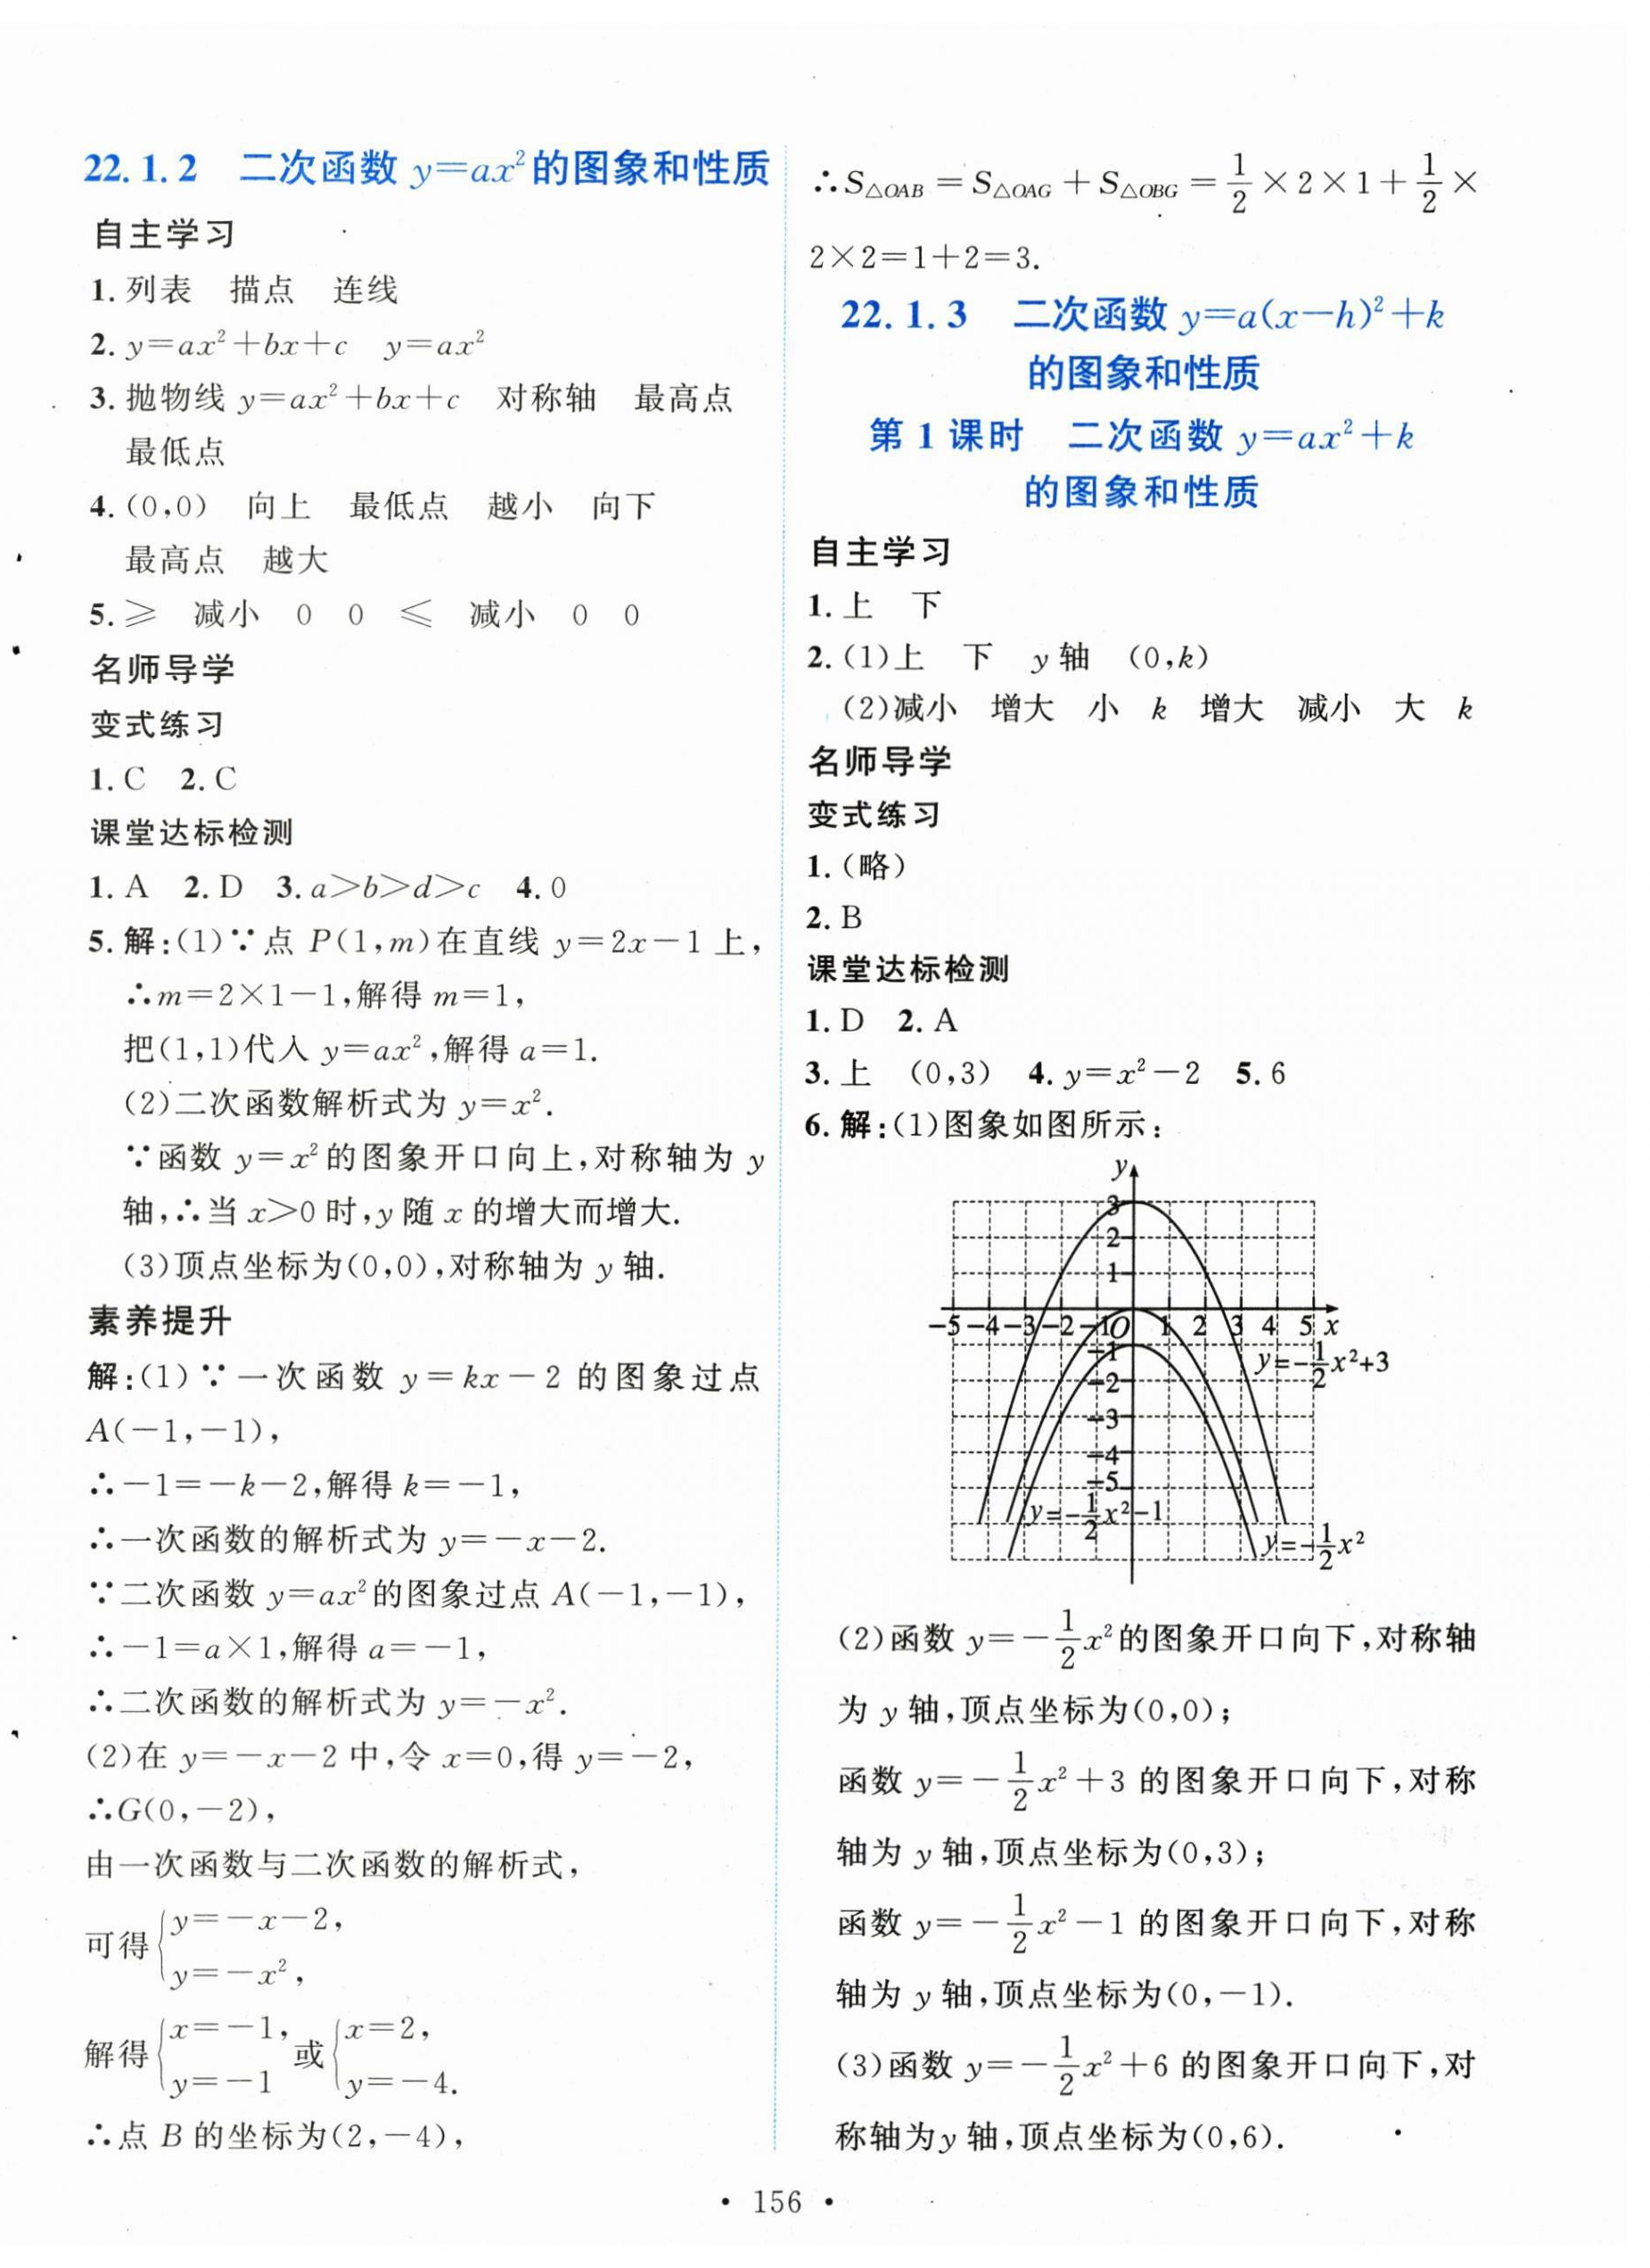 22.1.2 二次函数 y=ax²的图象和性质
自主学习
1.列表 描点 连线
2.y=ax²+bx+c y=ax²
3.抛物线 y=ax²+bx+c 对称轴 最高点
最低点
4.(0,0) 向上 最低点 越小 向下
最高点 越大
5.≥ 减小 0 0 ≤ 减小 0 0
名师导学
变式练习
1.C 2.C
课堂达标检测
1.A 2.D 3.a>b>d>c 4.0
5.解:(1)∵点 P(1,m)在直线 y=2x-1 上,
∴m=2×1-1,解得 m=1,
把(1,1)代入 y=ax²,解得 a=1.
(2)二次函数解析式为 y=x².
∵函数 y=x²的图象开口向上,对称轴为 y
轴,∴当 x>0 时,y 随 x 的增大而增大.
(3)顶点坐标为(0,0),对称轴为 y 轴.
素养提升
解:(1)∵一次函数 y=kx-2 的图象过点
A(-1,-1),
∴-1=-k-2,解得 k=-1,
∴一次函数的解析式为 y=-x-2.
∵二次函数 y=ax²的图象过点 A(-1,-1),
∴-1=a×1,解得 a=-1,
∴二次函数的解析式为 y=-x².
(2)在 y=-x-2 中,令 x=0,得 y=-2,
∴G(0,-2),
由一次函数与二次函数的解析式,
可得{y=-x-2,
y=-x²,
解得{x=-1, 或{x=2,
y=-1 y=-4.
∴点 B 的坐标为(2,-4),
∴S△OAB=S△OAG+S△OBG=1/2×2×1+1/2×
2×2=1+2=3.
22.1.3 二次函数 y=a(x-h)²+k
的图象和性质
第 1 课时 二次函数 y=ax²+k
的图象和性质
自主学习
1.上 下
2.(1)上 下 y 轴 (0,k)
(2)减小 增大 小 k 增大 减小 大 k
名师导学
变式练习
1.(略)
2.B
课堂达标检测
1.D 2.A
3.上 (0,3) 4.y=x²-2 5.6
6.解:(1)图象如图所示:
y
3
2
1
-5 -4 -3 -2 -1 O 1 2 3 4 5 x
-1
y=-1/2x²+3
-2
-3
-4
-5
y=-1/2x²-1
y=-1/2x²
(2)函数 y=-1/2x²的图象开口向下,对称轴
为 y 轴,顶点坐标为(0,0);
函数 y=-1/2x²+3 的图象开口向下,对称
轴为 y 轴,顶点坐标为(0,3);
函数 y=-1/2x²-1 的图象开口向下,对称
轴为 y 轴,顶点坐标为(0,-1).
(3)函数 y=-1/2x²+6 的图象开口向下,对
称轴为y 轴,顶点坐标为(0,6).
· 156 ·